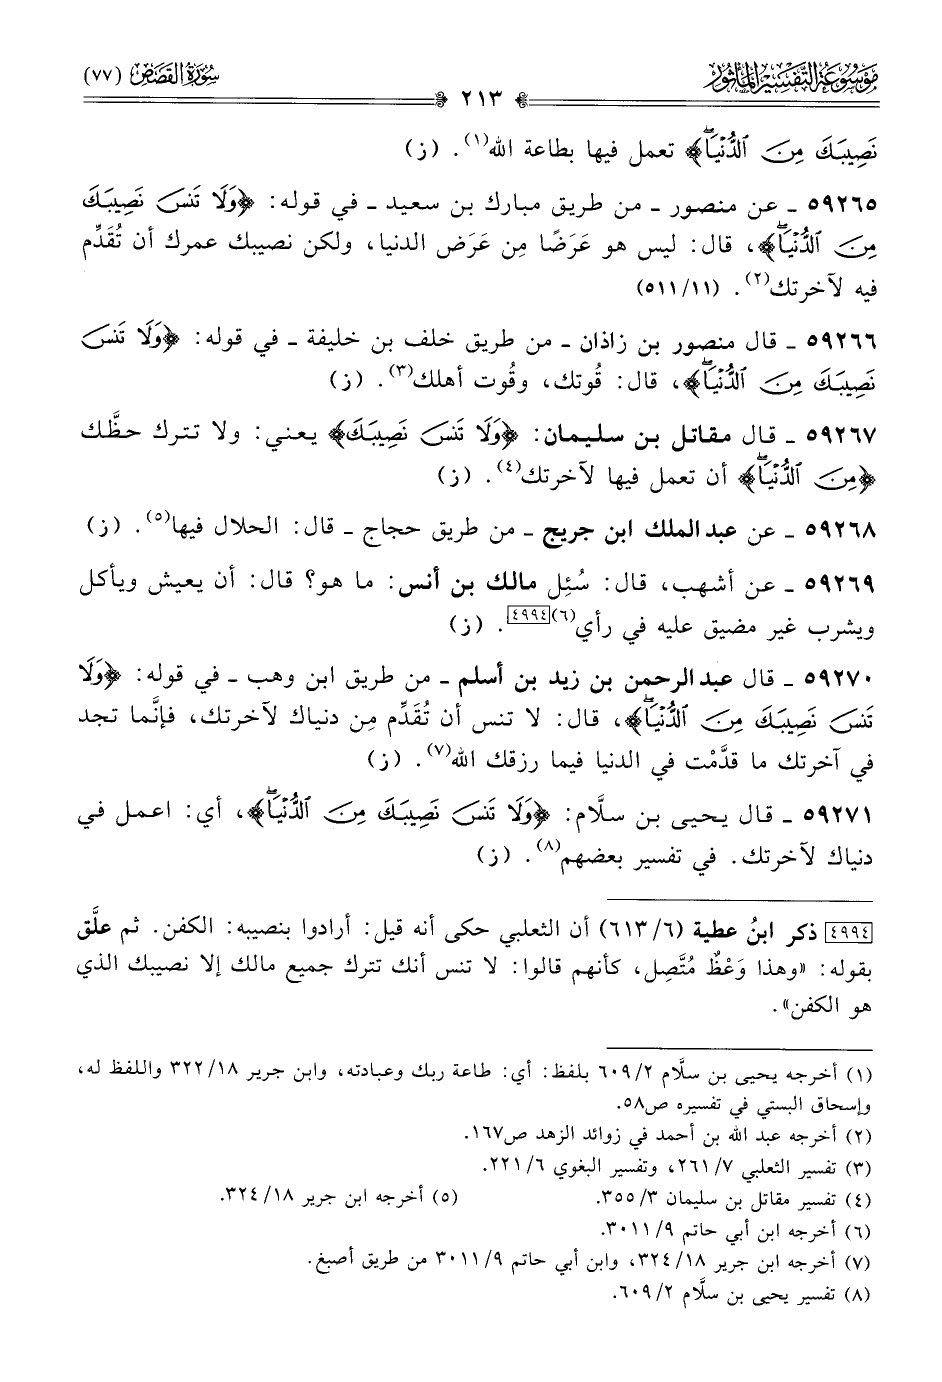 موسوعة التفسير المأثور
٢١٣
سورة القصص (٧٧)
نَصِيبَكَ مِنَ ٱلدُّنْيَاۖ﴾ تعمل فيها بطاعة الله(١). (ز)
٥٩٢٦٥ ـ عن منصور ـ من طريق مبارك بن سعيد ـ في قوله: ﴿وَلَا تَنسَ نَصِيبَكَ
مِنَ ٱلدُّنْيَاۖ﴾، قال: ليس هو عَرَضًا مِن عَرَض الدنيا، ولكن نصيبك عمرك أن تُقَدِّم
فيه لآخرتك(٢). (٥١١/١١)
٥٩٢٦٦ ـ قال منصور بن زاذان ـ من طريق خلف بن خليفة ـ في قوله: ﴿وَلَا تَنسَ
نَصِيبَكَ مِنَ ٱلدُّنْيَاۖ﴾، قال: قُوتك، وقُوت أهلك(٣). (ز)
٥٩٢٦٧ ـ قال مقاتل بن سليمان: ﴿وَلَا تَنسَ نَصِيبَكَ﴾ يعني: ولا تترك حظَّك
﴿مِنَ ٱلدُّنْيَاۖ﴾ أن تعمل فيها لآخرتك(٤). (ز)
٥٩٢٦٨ ـ عن عبد الملك ابن جريج ـ من طريق حجاج ـ قال: الحلال فيها(٥). (ز)
٥٩٢٦٩ ـ عن أشهب، قال: سُئِل مالك بن أنس: ما هو؟ قال: أن يعيش ويأكل
ويشرب غير مضيق عليه في رأي(٦)[٤٩٩٤]. (ز)
٥٩٢٧٠ ـ قال عبد الرحمن بن زيد بن أسلم ـ من طريق ابن وهب ـ في قوله: ﴿وَلَا
تَنسَ نَصِيبَكَ مِنَ ٱلدُّنْيَاۖ﴾، قال: لا تنس أن تُقَدِّم مِن دنياك لآخرتك، فإنَّما تجد
في آخرتك ما قدَّمْت في الدنيا فيما رزقك الله(٧). (ز)
٥٩٢٧١ ـ قال يحيى بن سلَّام: ﴿وَلَا تَنسَ نَصِيبَكَ مِنَ ٱلدُّنْيَاۖ﴾، أي: اعمل في
دنياك لآخرتك. في تفسير بعضهم(٨). (ز)
[٤٩٩٤] ذكر ابنُ عطية (٦١٣/٦) أن الثعلبي حكى أنه قيل: أرادوا بنصيبه: الكفن. ثم علَّق
بقوله: «وهذا وَعْظٌ مُتَّصِل، كأنهم قالوا: لا تنس أنك تترك جميع مالك إلا نصيبك الذي
هو الكفن».
(١) أخرجه يحيى بن سلَّام ٦٠٩/٢ بلفظ: أي: طاعة ربك وعبادته، وابن جرير ٣٢٢/١٨ واللفظ له،
وإسحاق البستي في تفسيره ص٥٨.
(٢) أخرجه عبد الله بن أحمد في زوائد الزهد ص١٦٧.
(٣) تفسير الثعلبي ٢٦١/٧، وتفسير البغوي ٢٢١/٦.
(٤) تفسير مقاتل بن سليمان ٣٥٥/٣. (٥) أخرجه ابن جرير ٣٢٤/١٨.
(٦) أخرجه ابن أبي حاتم ٣٠١١/٩.
(٧) أخرجه ابن جرير ٣٢٤/١٨، وابن أبي حاتم ٣٠١١/٩ من طريق أصبغ.
(٨) تفسير يحيى بن سلَّام ٦٠٩/٢.